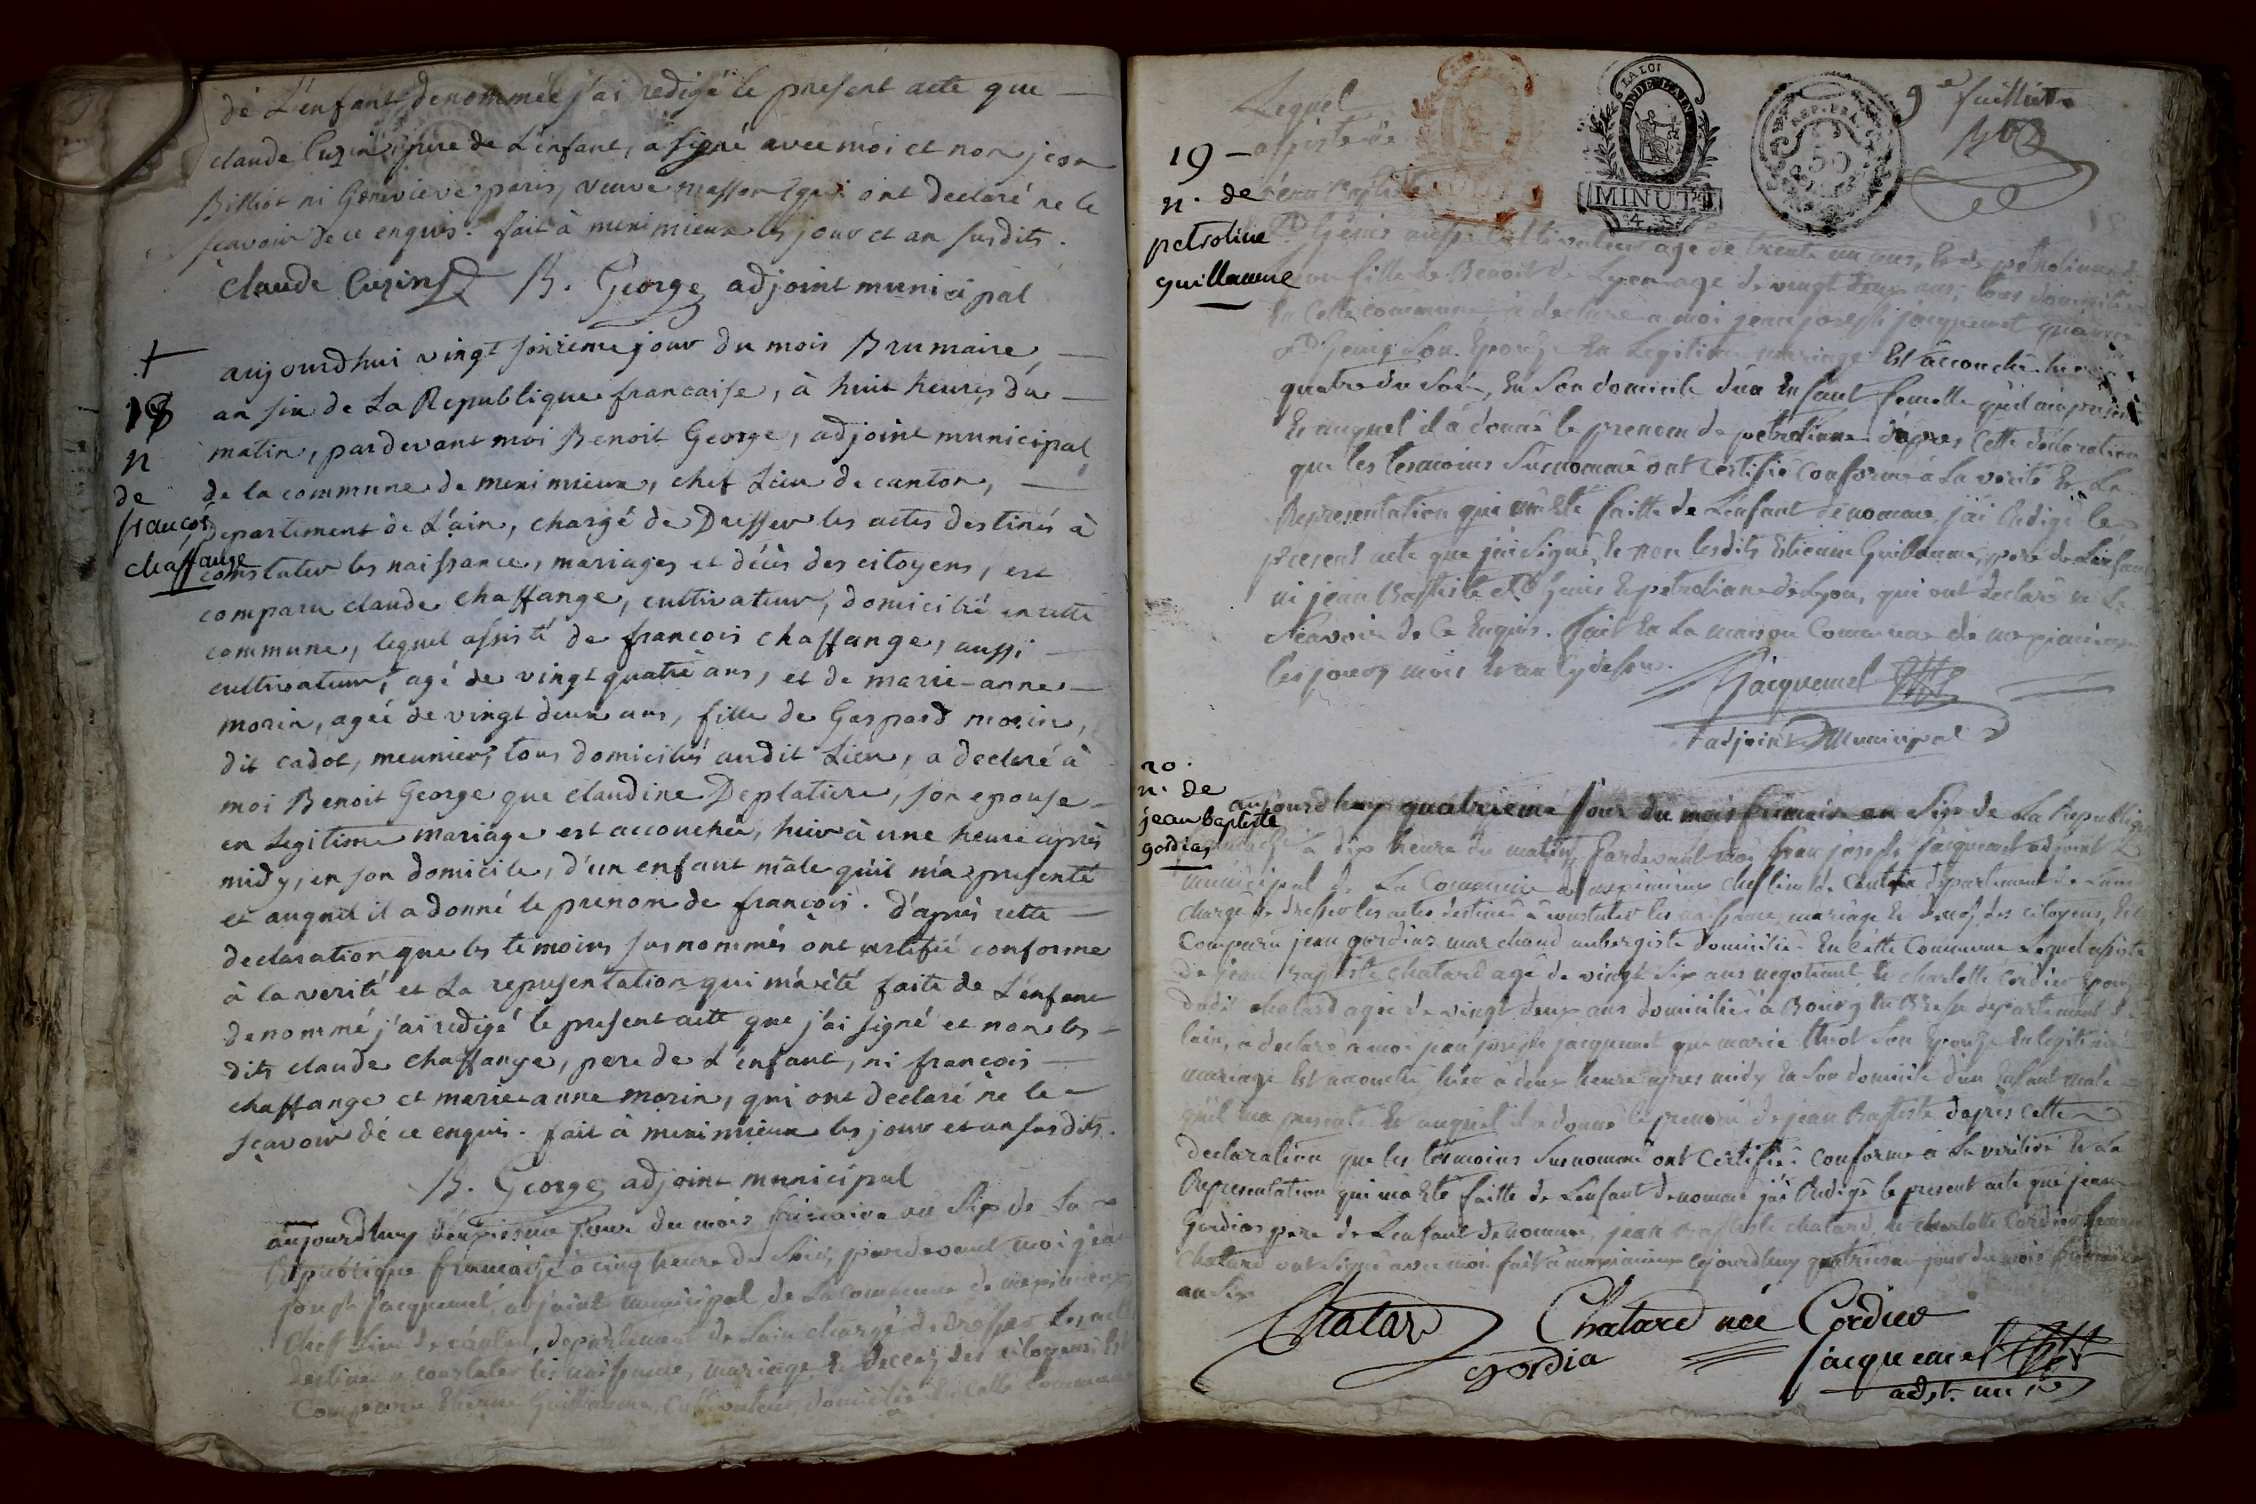 de L'enfant denommée j'ai redigé le present acte que
claude Cuzin, pere de L'enfant, a signé avec moi et non jean
Billiot ni Genevieve paris, veuve masson qui ont declaré ne le
scavoir de ce enquis. fait à meximieux les jour et an susdits.
claude Cuzin B. George adjoint municipal
+
18
n
de
françois
chaffange
aujourdhui vingt sixieme jour du mois Brumaire,
an six de La Republique francaise, à huit heures du
matin, pardevant moi Benoit George, adjoint municipal
de la commune de meximieux, chef Lieu de canton,
Departement de L'ain, chargé de Dresser les actes destinés à
constater les naissance, mariages et décès des citoyens, est
comparu claude chaffange, cultivateur, domicilié en cette
commune, lequel assisté de francois chaffange, aussi
cultivateur, agé de vingt quatre ans, et de marie-anne
morin, agée de vingt deux ans, fille de Gaspard morin,
dit cadot, meunier, tous domiciliés audit Lieu, a declaré à
moi Benoit George que claudine Deplatiere, son epouse
en Legitime mariage est accouchée, hier à une heure après
midy, en son domicile, d'un enfant mâle qu'il m'a presenté
et auquel il a donné le prenom de francois. d'après cette
declaration que les temoins susnommés ont certifié conforme
à la verité et La representation qui m'a été faite de L'enfant
denommé j'ai redigé le present acte que j'ai signé et non les
dits claude chaffange, pere de L'enfant, ni francois
chaffange et marie anne morin, qui ont declaré ne le
scavoir de ce enquis. fait à meximieux les jour et an susdits.
B. George adjoint municipal
aujourdhuy deuxieme jour du mois frimaire an Six de La
Republique francaise à cinq heure du Soir, pardevant moi jean
joseph jacquemet, adjoint municipal de La commune de meximieux
Chef Lieu de canton, departement de Lain chargé de dresser les actes
destinés a constater les naissance, mariage et decces des citoyens, Est
Comparu Etienne Guillaume, Cultivateur, domicilié En cette commune
9e feuillette
LA LOI
MINUTE
4 S
19
n. de
petroline
guillaume
Lequel
assisté de
jean Baptiste
St Genis aussi Cultivateur agé de trente un ans, Et de petroline de
Lyon fille de Benoit de Lyon age de vingt deux ans, tous domiciliés
En Cette commune, à declaré a moi jean joseph jacquemet
St Genis Son Epouse En Legitime mariage Est accouchée hier
quatre du Soir, En Son domicile d'un Enfant femelle qu'il m'a presenté
Et auquel il a donné le prenom de petroline. d'apres Cette declaration
que les temoins Susnommé ont Certifié Conforme a La verité Et La
Representation qui m'a Eté faitte de L'enfant denommé, j'ai Redigé le
present acte que j'ai Signé, Et non lesdits Etienne Guillaume, pere de L'enfant
ni jean Baptiste St Genis Et petroline de Lyon, qui ont declaré ne Le
Scavoir de Ce Enquis. fait En La maison Commune de meximieux
les jours mois Et an Cy dessus.
Jacquemet
adjoint Municipal
20.
n. de
jean baptiste
gordias
aujourdhuy quatrieme jour du mois frimaire an Six de La Republique
à dix heure du matin Pardevant moi Jean joseph jacquemet adjoint
municipal de La Commune de meximieux chef lieu de Canton departement de Lain
Chargé de dresser les actes destinés à constater les naissance, mariage Et deces des citoyens, Est
Comparu jean gordias marchand aubergiste domicilié En Cette Commune Lequel assisté
de jean Baptiste Chatard agé de vingt Six ans negotiant Et charlotte Cordier Epouse
dudit Chatard agée de vingt deux ans domiciliés à Bourg En Bresse departement de
Lain, à declaré à moi jean joseph jacquemet que marie Son Epouse En legitime
mariage Est accouchée, hier à deux heure apres midy En Son domicile d'un Enfant male
qu'il m'a presenté Et auquel il a donné le prenom de jean Baptiste d'après Cette
declaration que les temoins Susnommé ont Certifiés Conforme a La verité Et La
Representation qui m'a Eté faitte de L'enfant denommé j'ai Redigé le present acte que jean
Gordias pere de L'enfant denommé, jean Baptiste Chatard, Et Charlotte Cordier femme
Chatard ont Signé avec moi fait à meximieux Cejourdhuy quatrieme jour du mois frimaire
an Six
Chatard Chatard née Cordier
gordia jacquemet
adjt. mu